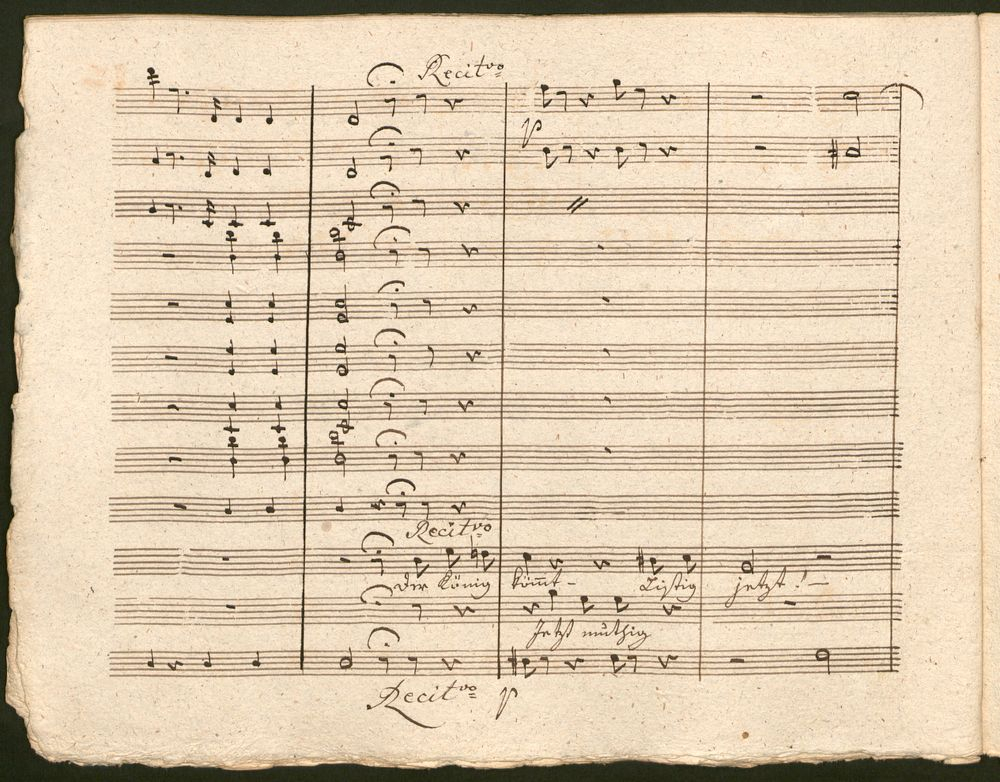 Recit:vo
p
Recit:vo
Der König kömmt - Listig jetzt! -
Jetzt muthig
Recit:vo p